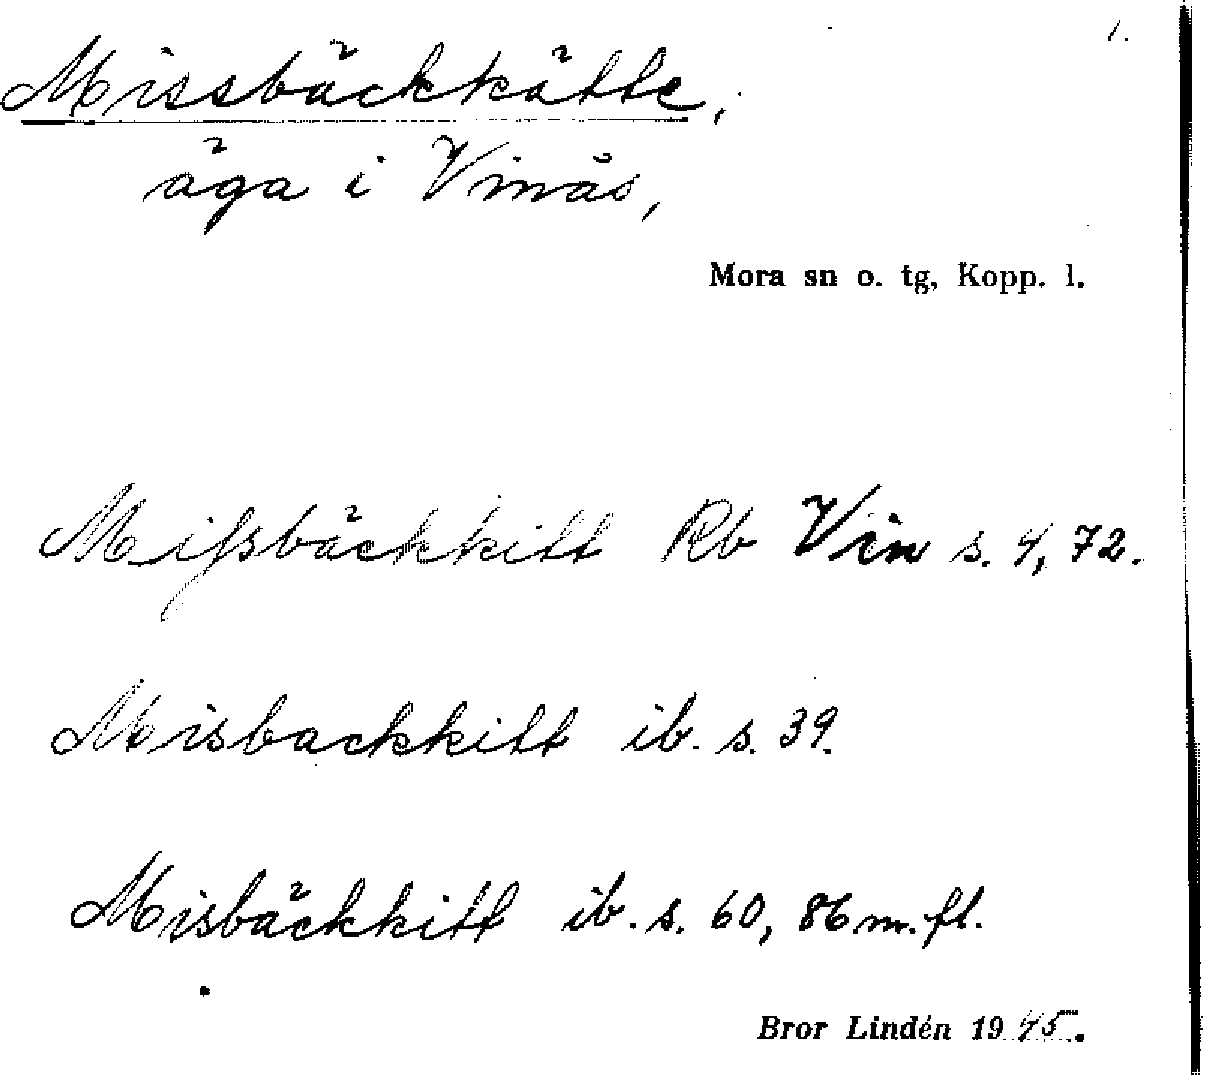 1.
Missbäckkätte,
äga i Vinäs,
Mora sn o. tg, Kopp. l.
Mißbäckkitt Rb Vin s. 4, 72.
Misbackkitt ib. s. 39.
Misbäckkitt ib. s. 60, 86 m. fl.
Bror Lindén 1945.